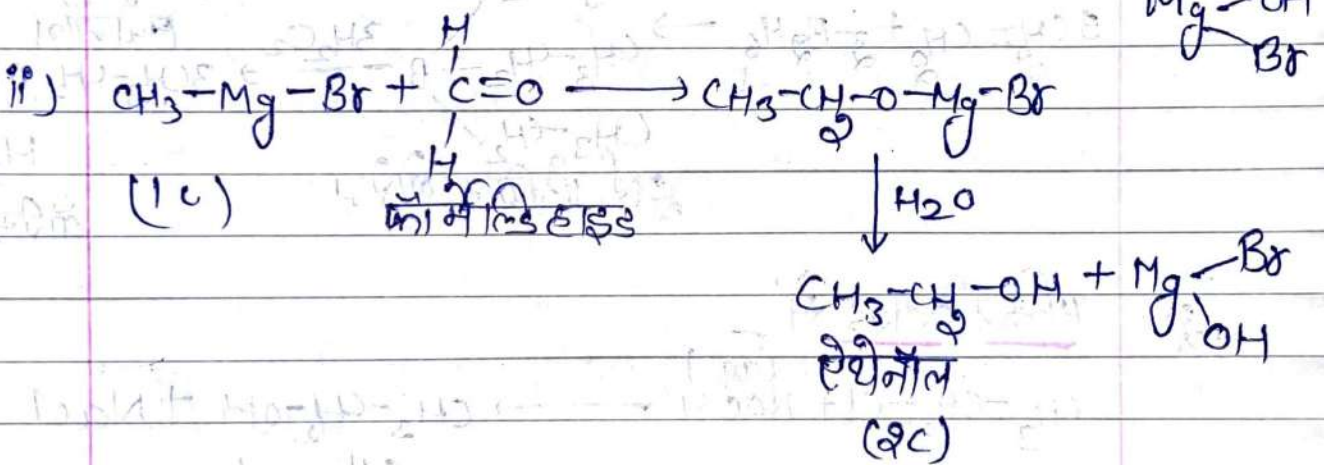 Mg-OH
Br
H
ii) CH3-Mg-Br + C=O ⟶ CH3-CH2-O-Mg-Br
H
(1C) फॉर्मेल्डिहाइड
↓ H2O
CH3-CH2-OH + Mg-Br
OH
ऐथेनॉल
(2C)